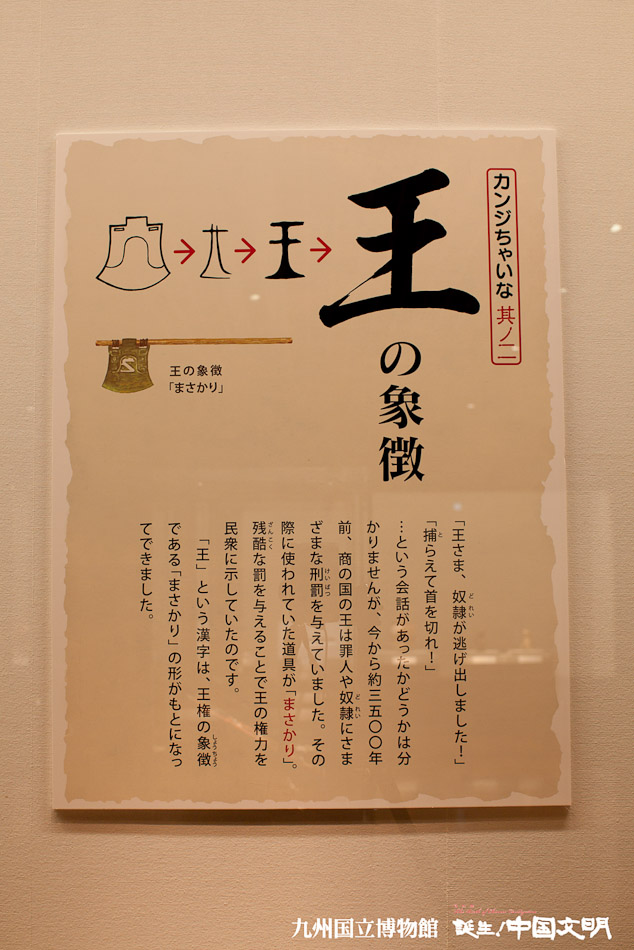 カンジちゃいな 其ノ二
王
の象徴
王
王の象徴
「まさかり」
「王さま、奴隷が逃げ出しました！」
「捕らえて首を切れ！」
…という会話があったかどうかは分
かりませんが、今から約三五〇〇年
前、商の国の王は罪人や奴隷にさま
ざまな刑罰を与えていました。その
際に使われていた道具が「まさかり」。
残酷な罰を与えることで王の権力を
民衆に示していたのです。
「王」という漢字は、王権の象徴
である「まさかり」の形がもとになっ
てできました。
九州国立博物館
誕生！中国文明